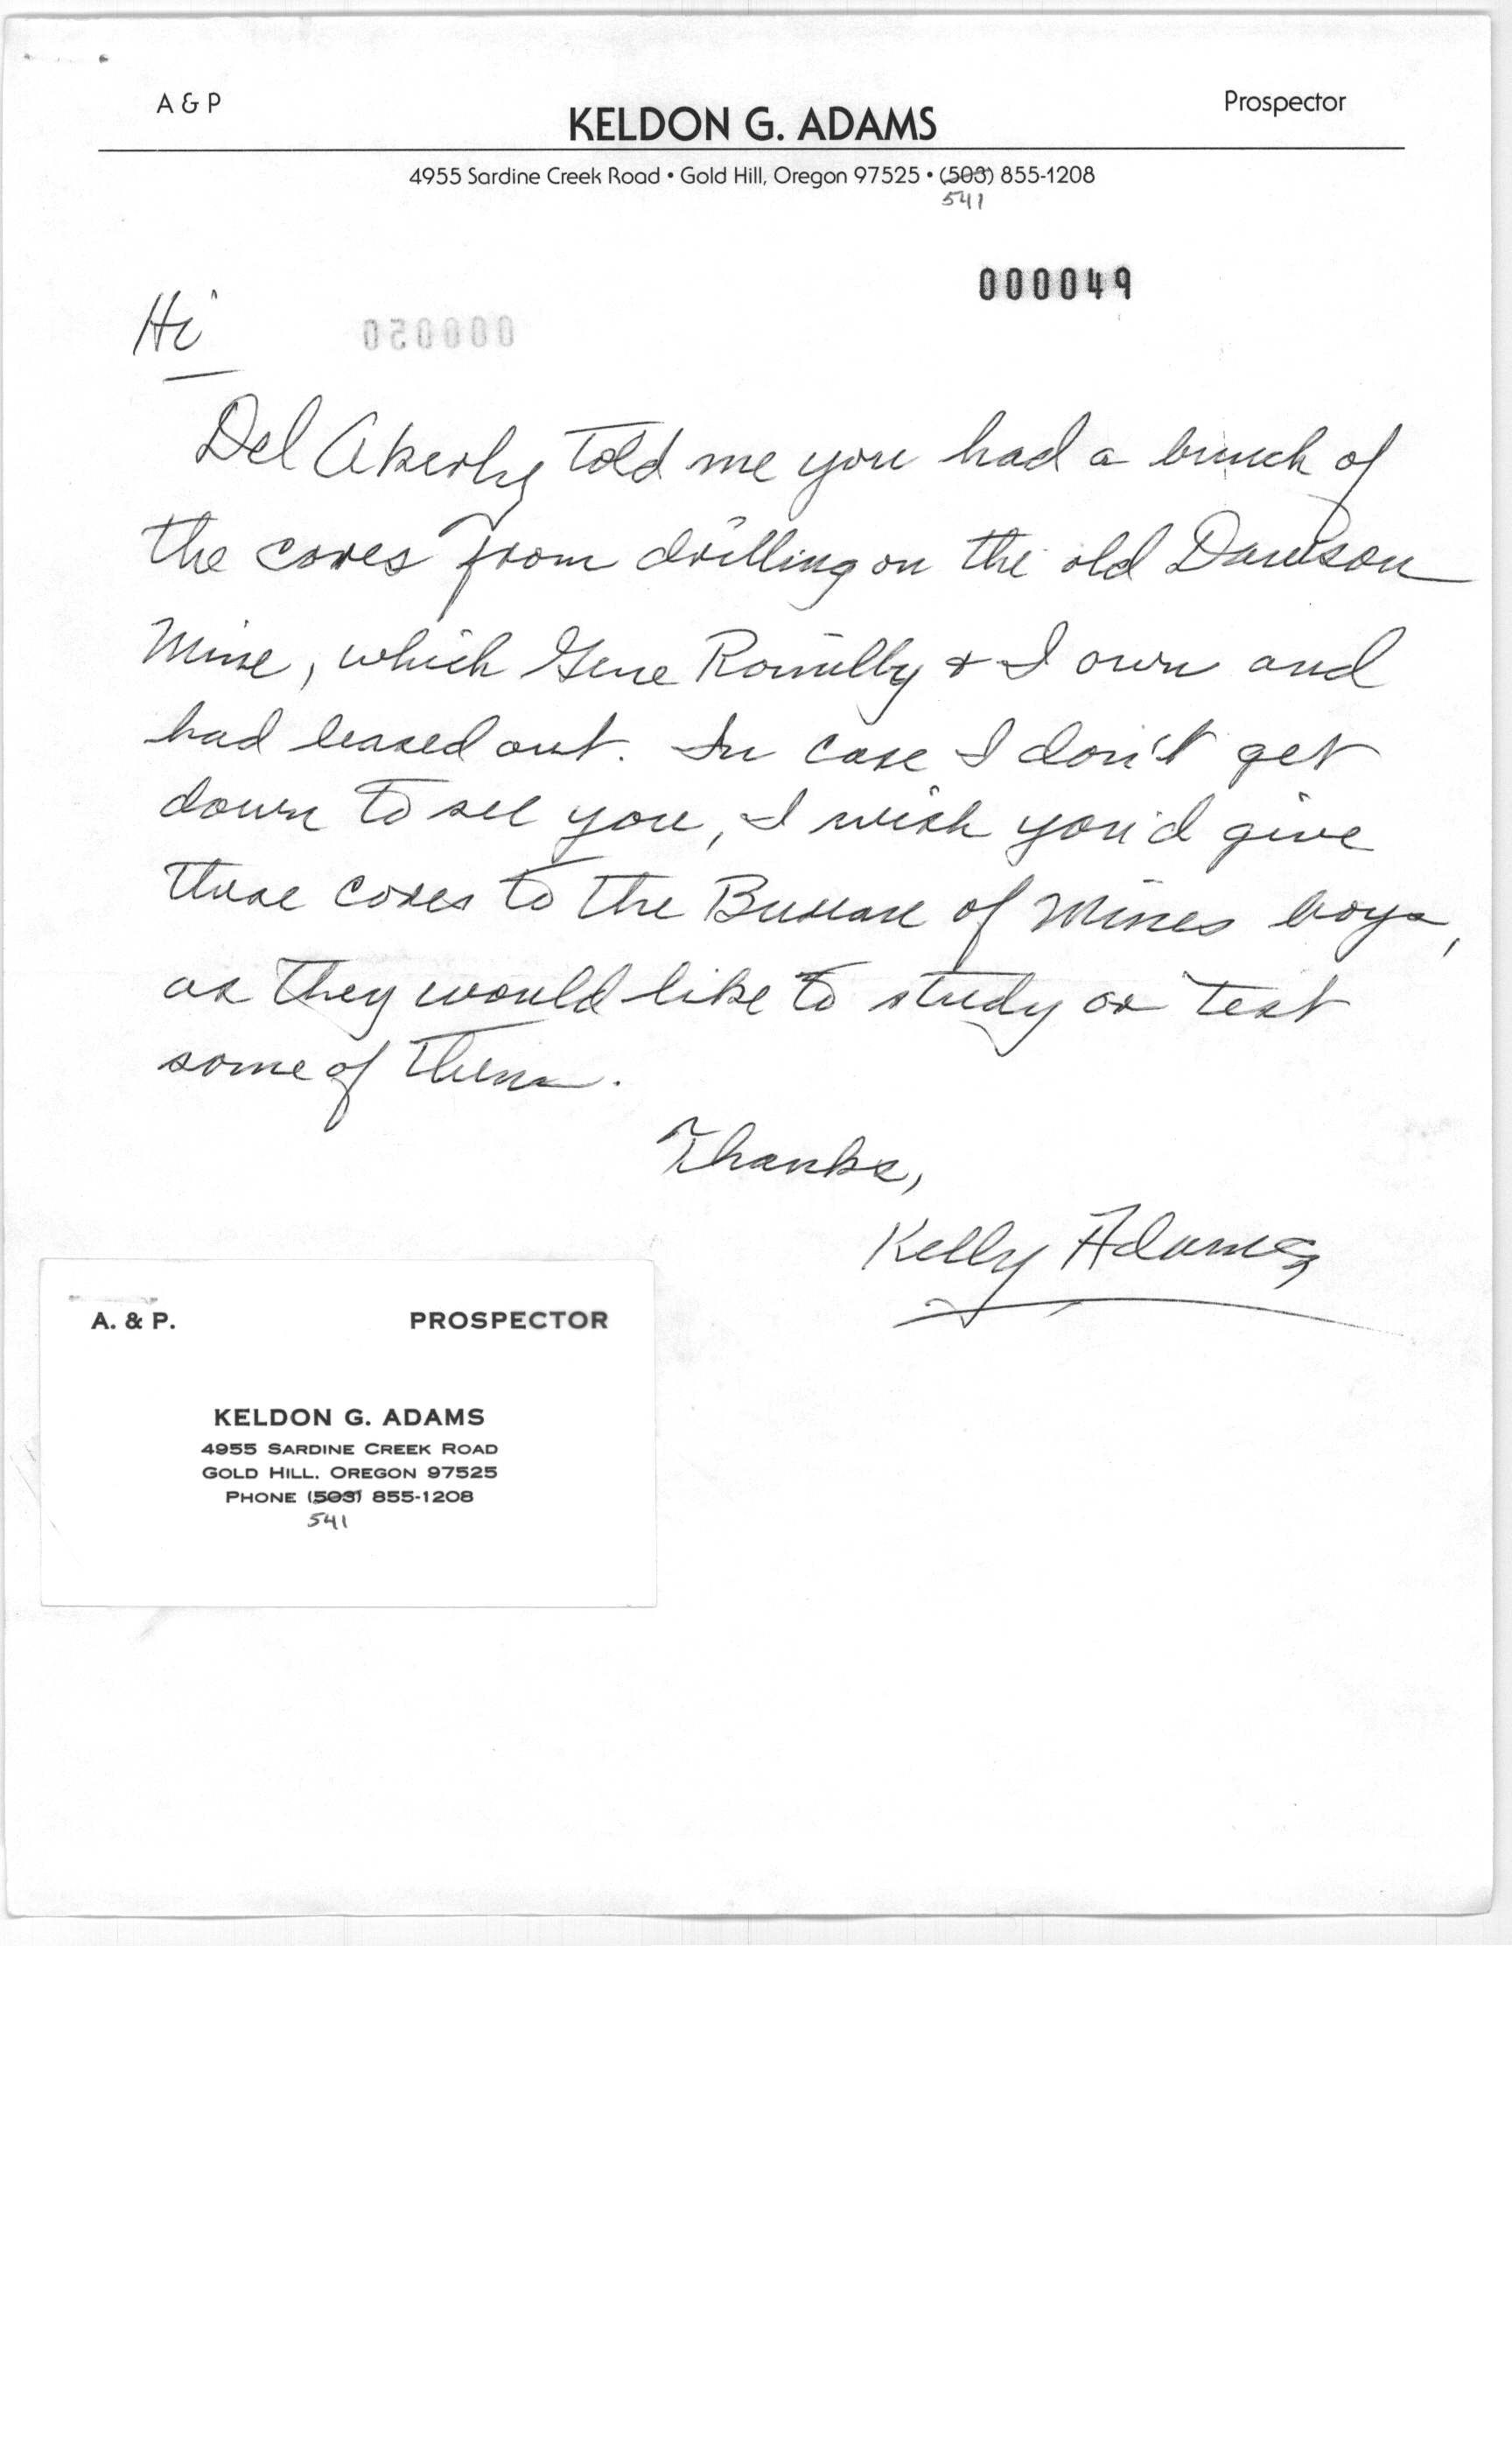 A & P
Prospector
KELDON G. ADAMS
4955 Sardine Creek Road • Gold Hill, Oregon 97525 • (503) 855-1208
541
000049
Hi
000050
Del Akerly told me you had a bunch of
the cores from drilling on the old Dawson
Mine, which Gene Romilly & I own and
had leased out. In case I don't get
down to see you, I wish you'd give
those cores to the Bureau of Mines boys,
as they would like to study or test
some of them.
Thanks,
Kelly Adams
A. & P. PROSPECTOR
KELDON G. ADAMS
4955 SARDINE CREEK ROAD
GOLD HILL, OREGON 97525
PHONE (503) 855-1208
541